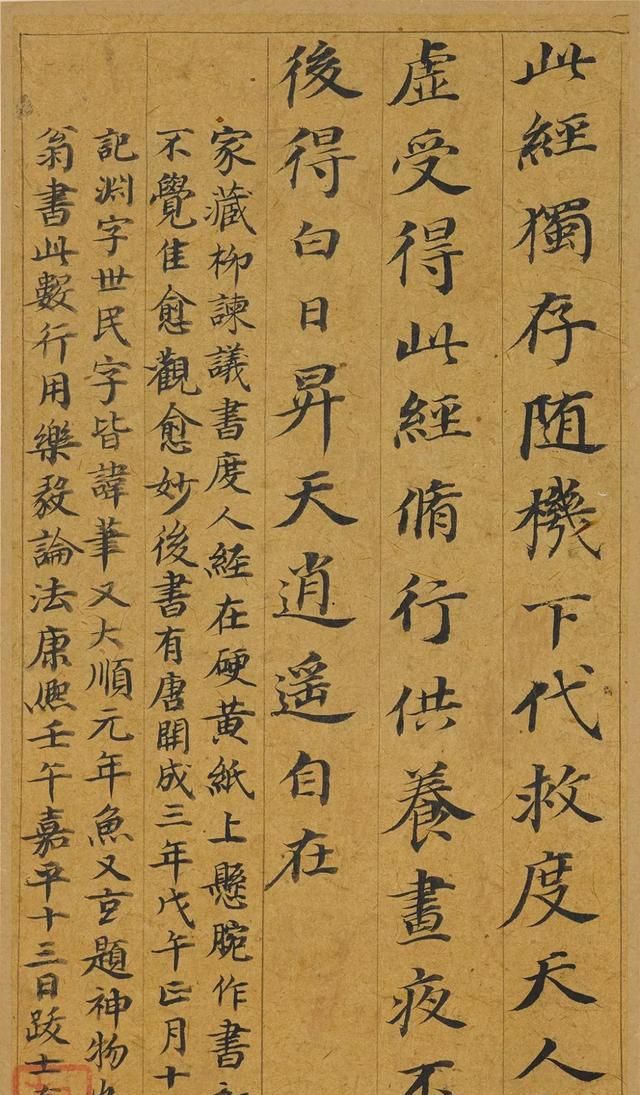 此經獨存隨機下代救度天人
虛受得此經脩行供養晝夜不
後得白日昇天逍遥自在
家藏柳諫議書度人經在硬黃紙上懸腕作書初
不覺佳愈觀愈妙後書有唐開成三年戊午正月十
記淵字世民字皆諱筆又大順元年魚又玄題神物
翁書此數行用樂毅論法康熙壬午嘉平十三日跋士